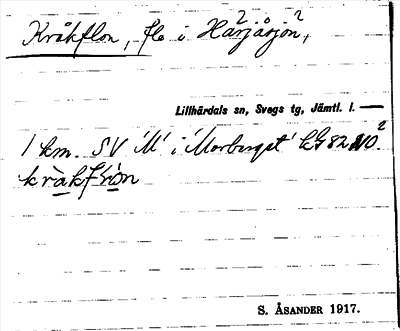 Kråkflon, flo i Härjåsjön,
Lillhärdals sn, Svegs tg, Jämtl. l.
1 km. SV 'M' i 'Morberget' kG 82 NO.
S. ÅSANDER 1917.